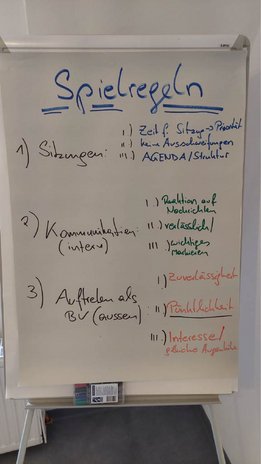 Spielregeln
1) Sitzungen:
I.) Zeit f. Sitzung → Priorität
II.) keine Ausschreitungen
III.) AGENDA/Struktur
2) Kommunikation: (intern)
I.) Reaktion auf Nachrichten
II.) verlässlich/
III.) wichtiges markieren
3) Auftreten als BV (aussen):
I.) Zuverlässigkeit
II.) Pünktlichkeit
III.) Interesse/
gleiche